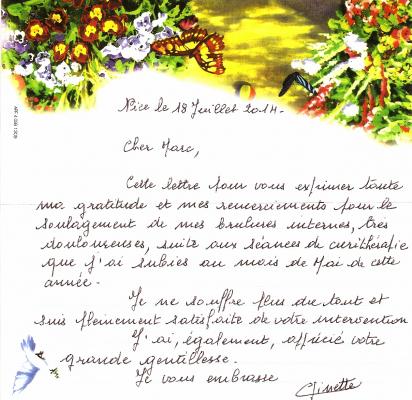 Nice le 18 Juillet 2014.
Cher Marc,
Cette lettre pour vous exprimer toute
ma gratitude et mes remerciements pour le
soulagement de mes brulures internes, très
douloureuses, suite aux séances de curithérapie
que j'ai subies au mois de Mai de cette
année.
Je ne souffre plus du tout et
suis pleinement satisfaite de votre intervention
J'ai, également, apprécié votre
grande gentillesse.
Je vous embrasse
Ginette